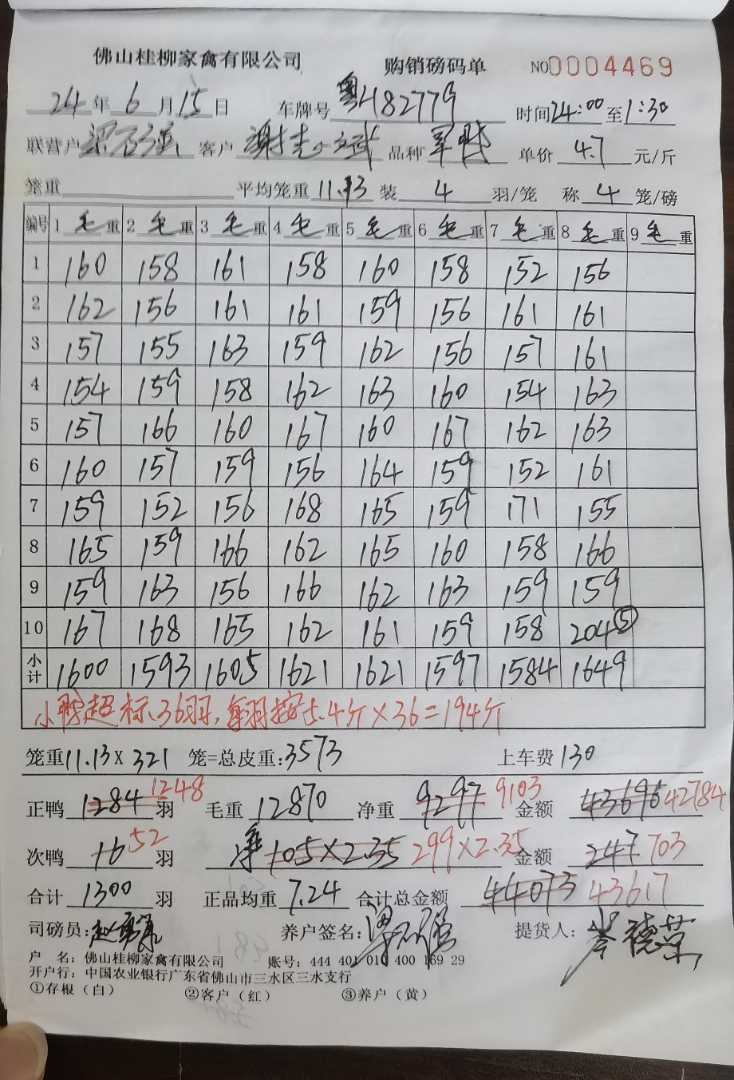 佛山桂柳家禽有限公司 购销磅码单 NO0004469
24年6月15日 车牌号 粤H82779 时间24:00至1:30
联营户 梁石强 客户 品种 单价 4.7 元/斤
笼重 平均笼重11.13装 4 羽/笼 称 4 笼/磅
编号 1毛重 2毛重 3毛重 4毛重 5毛重 6毛重 7毛重 8毛重 9毛重
1 160 158 161 158 160 158 152 156
2 162 156 161 161 159 156 161 161
3 157 155 163 159 162 156 157 161
4 154 159 158 162 163 160 154 163
5 157 166 160 167 160 167 162 163
6 160 157 159 156 164 159 152 161
7 159 152 156 168 165 159 171 155
8 165 159 166 162 165 160 158 166
9 159 163 156 166 162 163 159 159
10 167 168 165 162 161 159 158 204⑤
小计 1600 1593 1605 1621 1621 1597 1584 1649
小鸭超标36羽,每羽按5.4斤×36=194斤
笼重11.13×321 笼=总皮重:3573 上车费130
正鸭 1284 1248 羽 毛重 12870 净重 9297 9103 金额 43696 42784
次鸭 16 52 羽 净 105×2.35 299×2.35 金额 247 703
合计 1300 羽 正品均重 7.24 合计总金额 44073 43617
司磅员: 养户签名:梁石强 提货人:岑德荣
户 名:佛山桂柳家禽有限公司 账号:444 401 010 400 169 29
开户行:中国农业银行广东省佛山市三水区三水支行
①存根(白) ②客户(红) ③养户(黄)